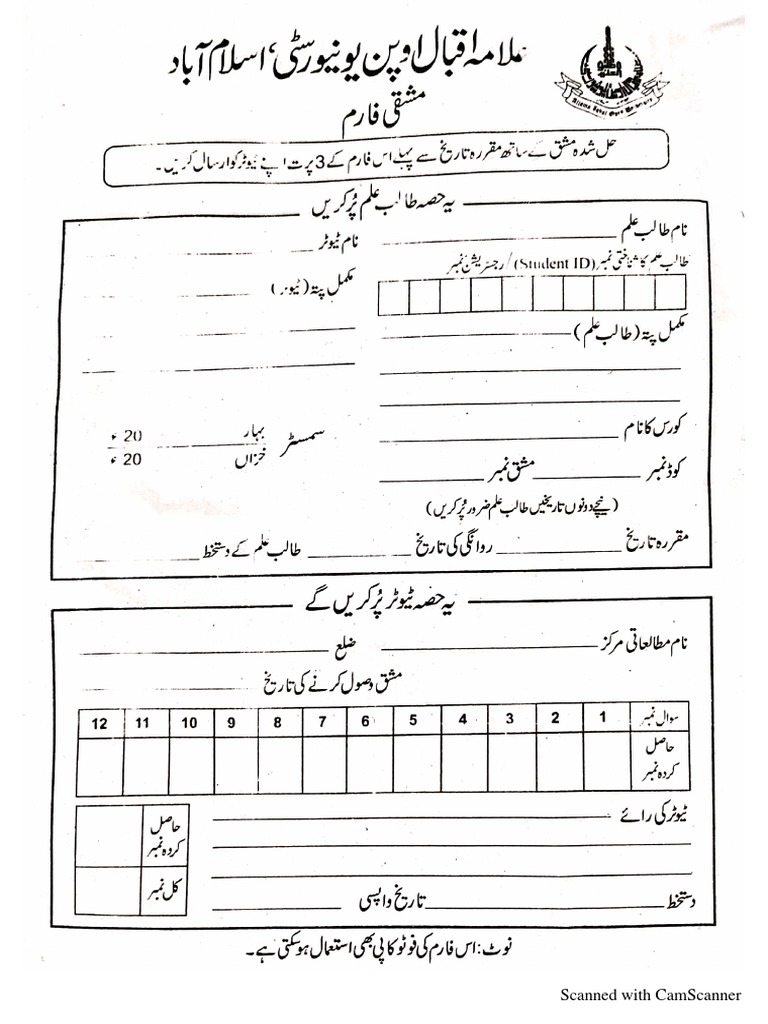 علامہ اقبال اوپن یونیورسٹی، اسلام آباد
Allama Iqbal Open University
مشقی فارم
حل شدہ مشق کے ساتھ مقررہ تاریخ سے پہلے اس فارم کے 3 پرت اپنے ٹیوٹر کو ارسال کریں۔
یہ حصہ طالب علم پُر کریں
نام طالب علم
نام ٹیوٹر
طالب علم کا شناختی نمبر (Student ID) / رجسٹریشن نمبر
مکمل پتہ (ٹیوٹر)
مکمل پتہ (طالب علم)
کورس کا نام
سمسٹر بہار 20ء
خزاں 20ء
کوڈ نمبر مشق نمبر
(نیچے دونوں تاریخیں طالب علم ضرور پُر کریں)
مقررہ تاریخ روانگی کی تاریخ طالب علم کے دستخط
یہ حصہ ٹیوٹر پُر کریں گے
نام مطالعاتی مرکز ضلع
مشق وصول کرنے کی تاریخ
سوال نمبر 1 2 3 4 5 6 7 8 9 10 11 12
حاصل کردہ نمبر
ٹیوٹر کی رائے
حاصل کردہ نمبر
کل نمبر
دستخط تاریخ واپسی
نوٹ: اس فارم کی فوٹو کاپی بھی استعمال ہو سکتی ہے۔
Scanned with CamScanner